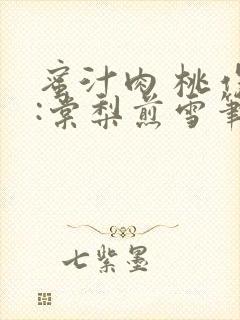 蜜汁肉桃
:棠梨煎雪
七紫墨